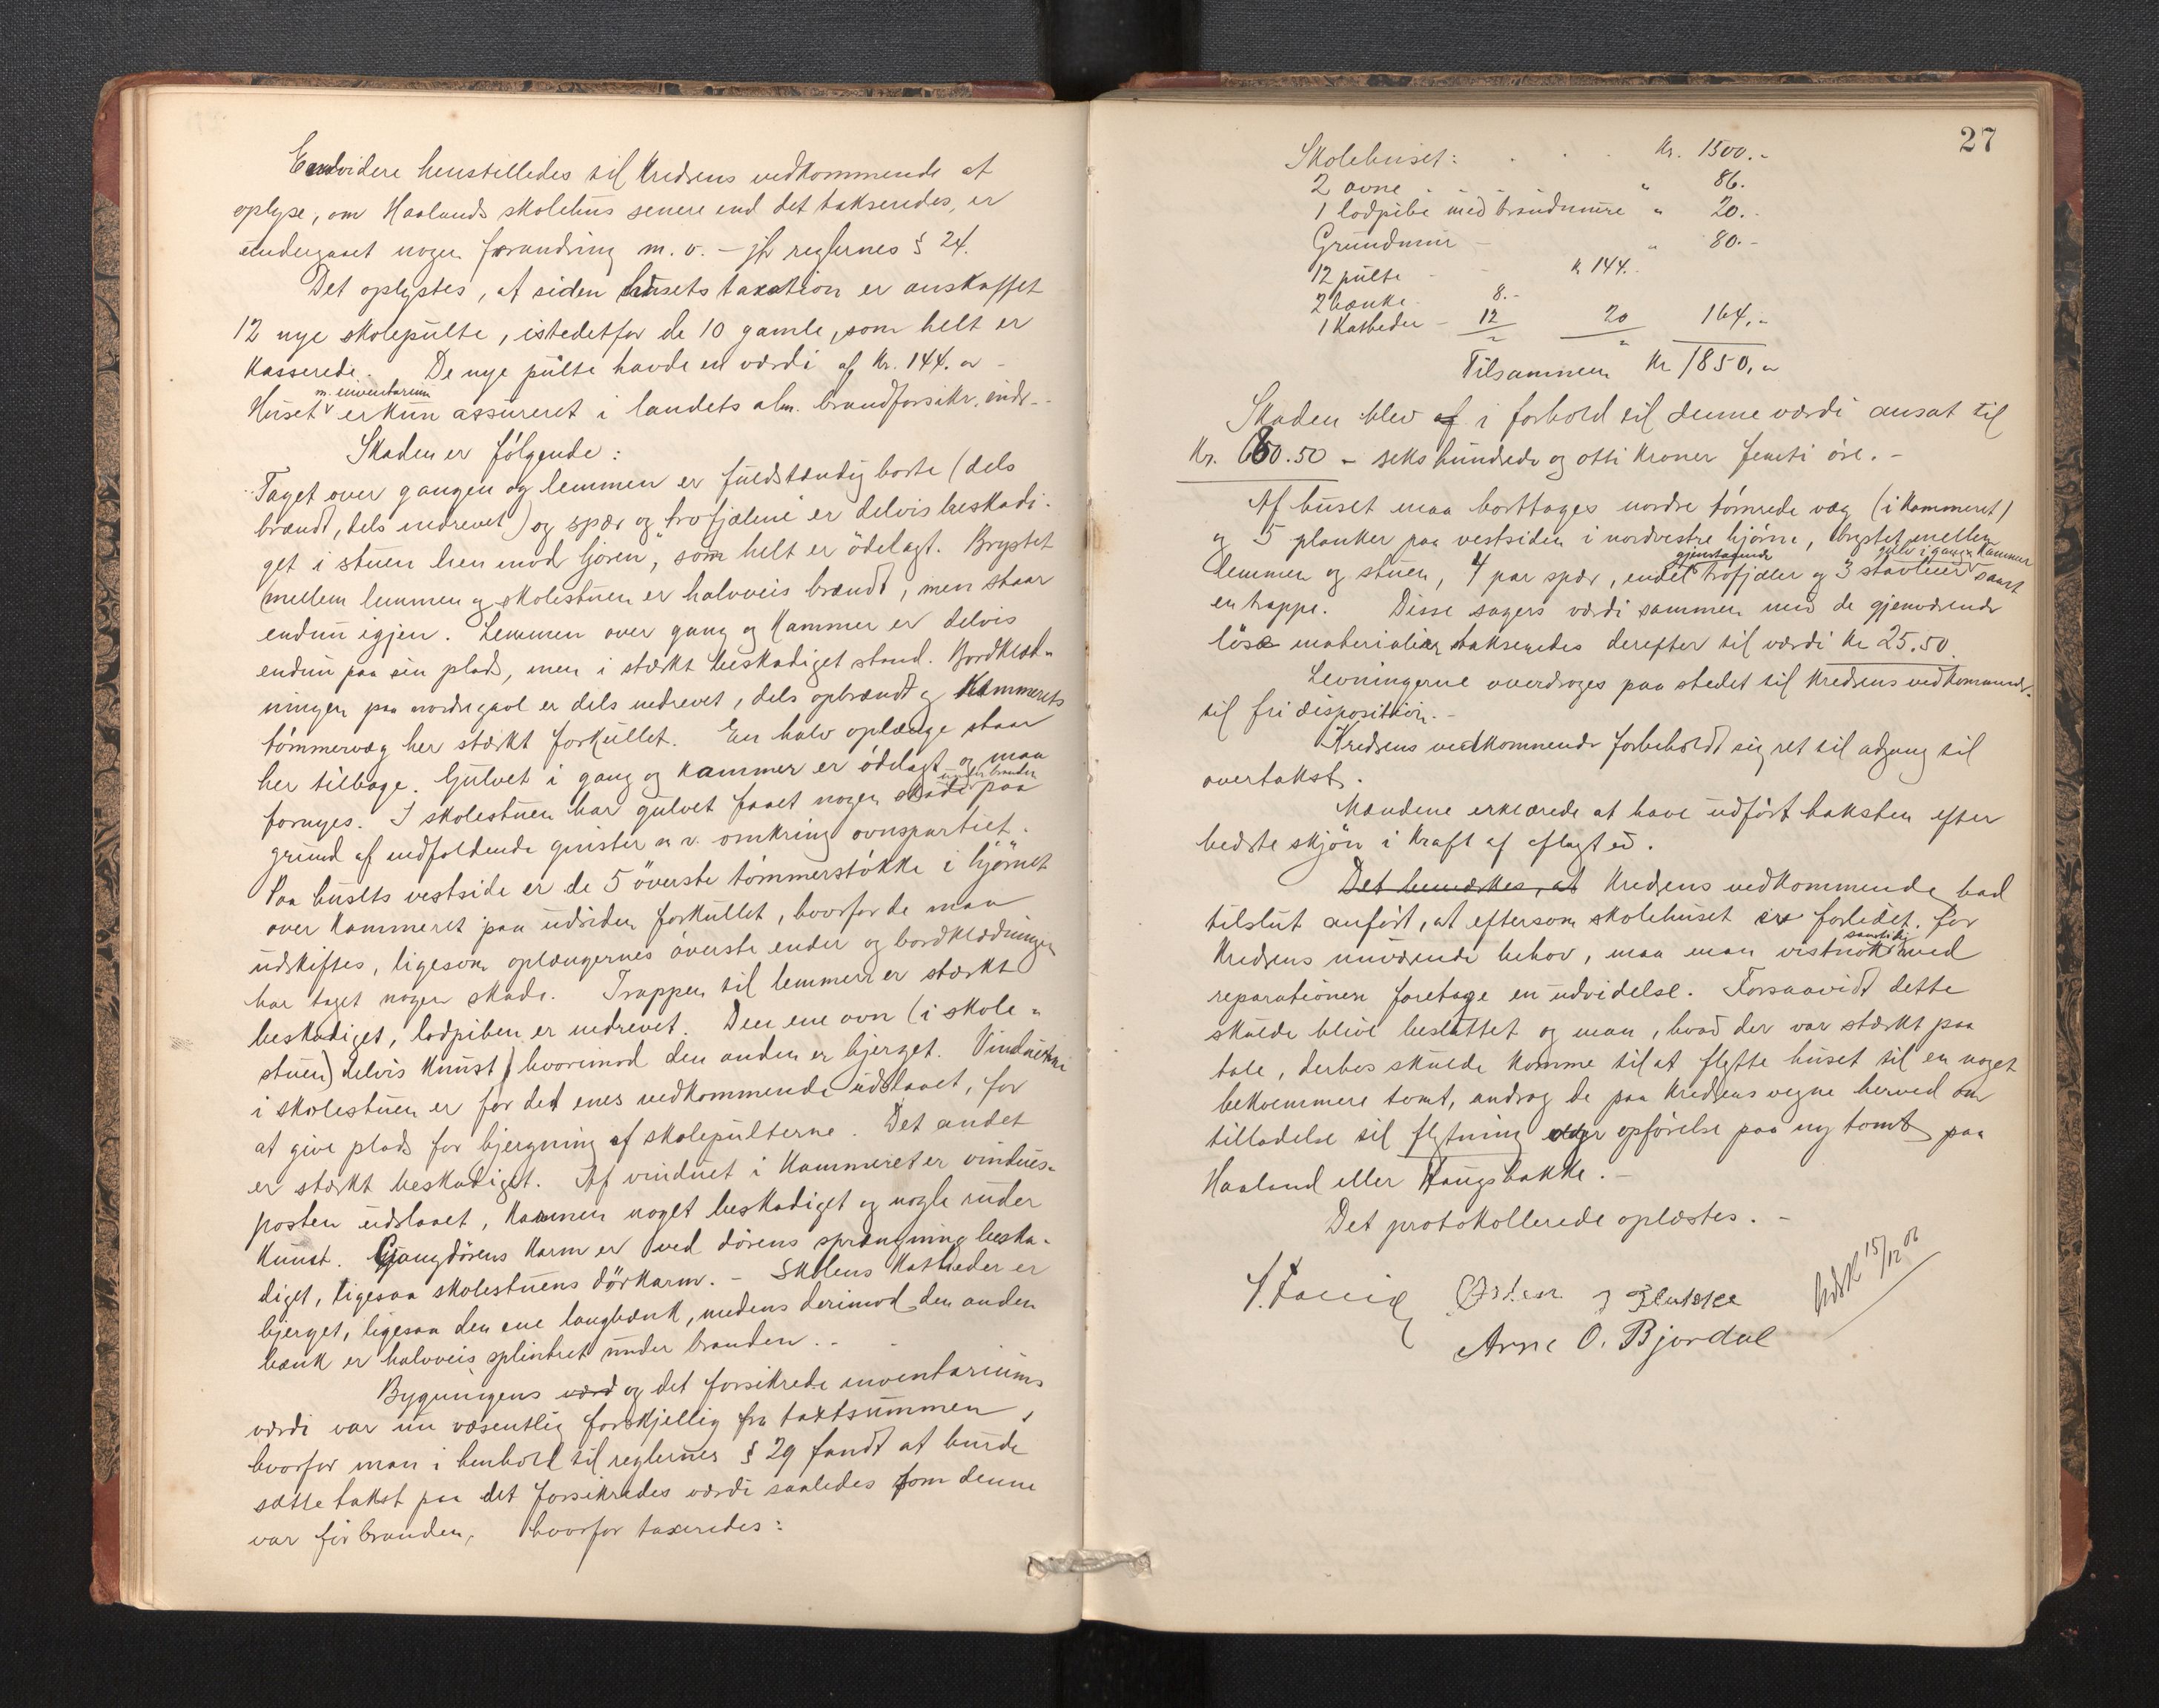 Endvidere henstilledes til Kredsens vedkommende at
oplyse, om Haalands skolehus senere end det takseredes, er
undergaaet nogen forandring m. v. – jfr reglernes § 24.
Det oplystes, at siden husets taxation er anskaffet
12 nye skolepulte, istedetfor de 10 gamle, som helt er
Kasserede. De nye pulte havde en værdi af Kr. 144.
m. inventarium
Huset er kun assureret i landets alm. brandforsikr. indr.
Skaden er følgende:
Taget over gangen og lemmen er fuldstændig borte (dels
brændt, dels nedrevet) og spær og trofjælene er delvis beskadi-
get i stuen hen mod ljoren, som helt er ödelagt. Brystet
mellem lemmen og skolestuen er halvveis brændt, men staar
endnu igjen. Lemmen over gang og Kammer er delvis
endnu paa sin plads, men i stærkt beskadiget stand. Bordklæd-
ningen paa nordre gavl er dels nedrevet, dels opbrændt og Kammerets
tömmervæg her stærkt forkullet. En halv oplænge staar
her tilbage. Gulvet i gang og Kammer er ödelagt og maa
under branden
fornyes. I skolestuen har gulvet faaet nogen skade paa
grund af nedfaldende gnister m. v. omkring ovnspartiet.
Paa husets vestside er de 5 överste tömmerstökke i hjörnet
over Kammeret paa udsiden forkullet, hvorfor de maa
udskiftes, ligesom oplængernes överste ender og bordklædningen
har taget nogen skade. Trappen til lemmen er stærkt
beskadiget, lodpiben er nedrevet. Den ene ovn (i skole-
stuen) delvis Knust, hvorimod den anden er bjerget. Vinduerne
i skolestuen er for det enes vedkommende udslaaet, for
at give plads for bjergning af skolepulterne. Det andet
er stærkt beskadiget. Af vinduet i Kammeret er vindues-
posten udslaaet, Karmen noget beskadiget og nogle ruder
Knust. Gangdörens Karm er ved dörens sprængning beska-
diget, ligesaa skolestuens dörkarm. – Skolens Katheder er
bjerget, ligesaa den ene langbænk, medens derimod den anden
bænk er halvveis splintret under branden.
Bygningens værd og det forsikrede inventariums
værdi var nu væsentlig forskjellig fra taxtsummen,
hvorfor man i henhold til reglernes § 29 fandt at burde
sætte takst paa det forsikredes værdi saaledes som denne
var för branden, hvorfor taxeredes:
27
Skolehuset: Kr. 1500.-
2 ovne " 86.
1 lodpibe med brandmure " 20.-
Grundmur " 80.-
12 pulte K 144.
2 bænke 8.-
1 Katheder – 12 20 164.-
Tilsammen Kr 1850.
Skaden blev af i forhold til denne værdi ansat til
Kr. 680.50 – seks hundrede og otti Kroner femti öre. –
Af huset maa borttages nordre tömrede væg (i Kammeret)
og 5 planker paa vestsiden i nordvestre hjörne, brystet mellem
gjenstaaende gulv i gang og Kammer
lemmen og stuen, 4 par spær, endel trofjæler og 3 stavliner samt
en trappe. Disse sagers værdi sammen med de gjenværende
löse materialier taksendes derefter til værdi Kr 25.50
Levningerne overdroges paa stedet til Kredsens vedkommende
til fri disposition. –
Kredsens vedkommende forbeholdt sig ret til adgang til
overtakst.
Mændene erklærede at have udfört taksten efter
bedste skjön i Kraft af aflagt ed.
Det bemærkes, at Kredsens vedkommende bad
tilslut anfört, at eftersom skolehuset er forlidet for
samtidig
Kredsens nuværende behov, maa man vistnok med
reparationen foretage en udvidelse. Forsaavidt dette
skulde blive besluttet og man, hvad der var stærkt paa
tale, derhos skulde Komme til at flytte huset til en noget
bekvemmere tomt, androg de paa Kredsens vegne herved om
tilladelse til flytning eller opförelse paa ny tomt paa
Haaland eller Haugsbakke. –
Det protokollerede oplæstes. –
Arne O. Bjordal
Udsk 15/12 06